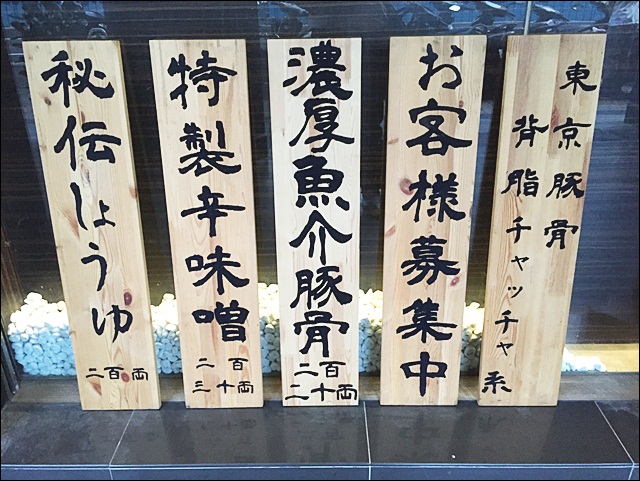 東京豚骨
背脂チャッチャ系
お客様募集中
濃厚魚介豚骨
二百
二十両
特製辛味噌
二百
三十両
秘伝しょうゆ
二百両